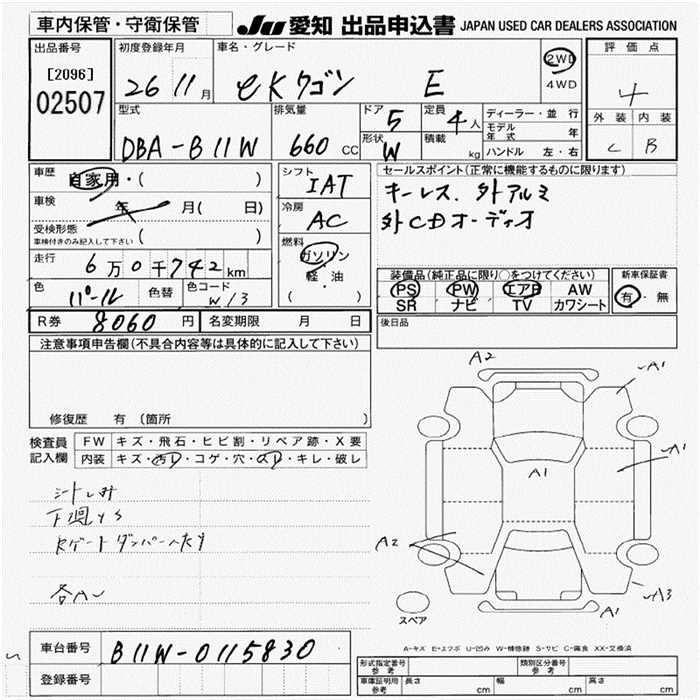 車内保管・守衛保管
JU 愛知 出品申込書 JAPAN USED CAR DEALERS ASSOCIATION
出品番号
[2096]
02507
初度登録年月
26 11月
車名・グレード
eKワゴン E
2WD
4WD
評価点
4
外装 内装
C B
型式
DBA-B11W
排気量
660 CC
ドア 5
形状 W
定員 4人
積載 kg
ディーラー・並行
モデル年式 年
ハンドル 左・右
車歴 自家用・( )
車検 年 月( 日)
受検形態
車検付きのみ記入して下さい ( )
走行 6万0千742km
色 パール 色替 色コード W13
R券 8060円 名変期限 月 日
シフト
IAT
冷房
AC
燃料
ガソリン
軽・油
( )
セールスポイント(正常に機能するものに限ります)
キーレス、外アルミ
外CDオーディオ
装備品(純正品に限り○をつけてください)
PS PW エアB AW
SR ナビ TV カワシート
新車保証書
有・無
後日品
注意事項申告欄(不具合内容等は具体的に記入して下さい)
修復歴 有 (箇所 )
検査員記入欄
FW キズ・飛石・ヒビ割・リペア跡・X要
内装 キズ・汚レ・コゲ・穴・スレ・キレ・破レ
シートしみ
下廻りS
Rゲートダンパーへたり
各A
A2
A1
A1
A1
A2
A3
A1
スペア
A-キズ E-エクボ U-凹み W-補修跡 S-サビ C-腐食 XX-交換済
車台番号 B11W-0115830
登録番号
形式指定番号 参考
類別区分番号 参考
車庫証明用 参考 長さ cm 幅 cm 高さ cm